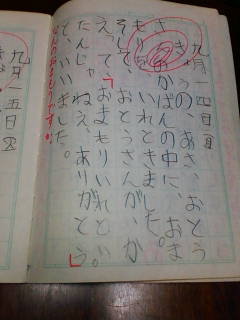 九月一四日
きょうの、あさ、おとう
さんのかばんの中に、おま
もりを、いれときました。
そして、おとうさんが、か
えって、「おまもりいれとい
たんじゃねえ、ありがとう。」
と、いいました。
なんのおまもりですか。
九月一五日